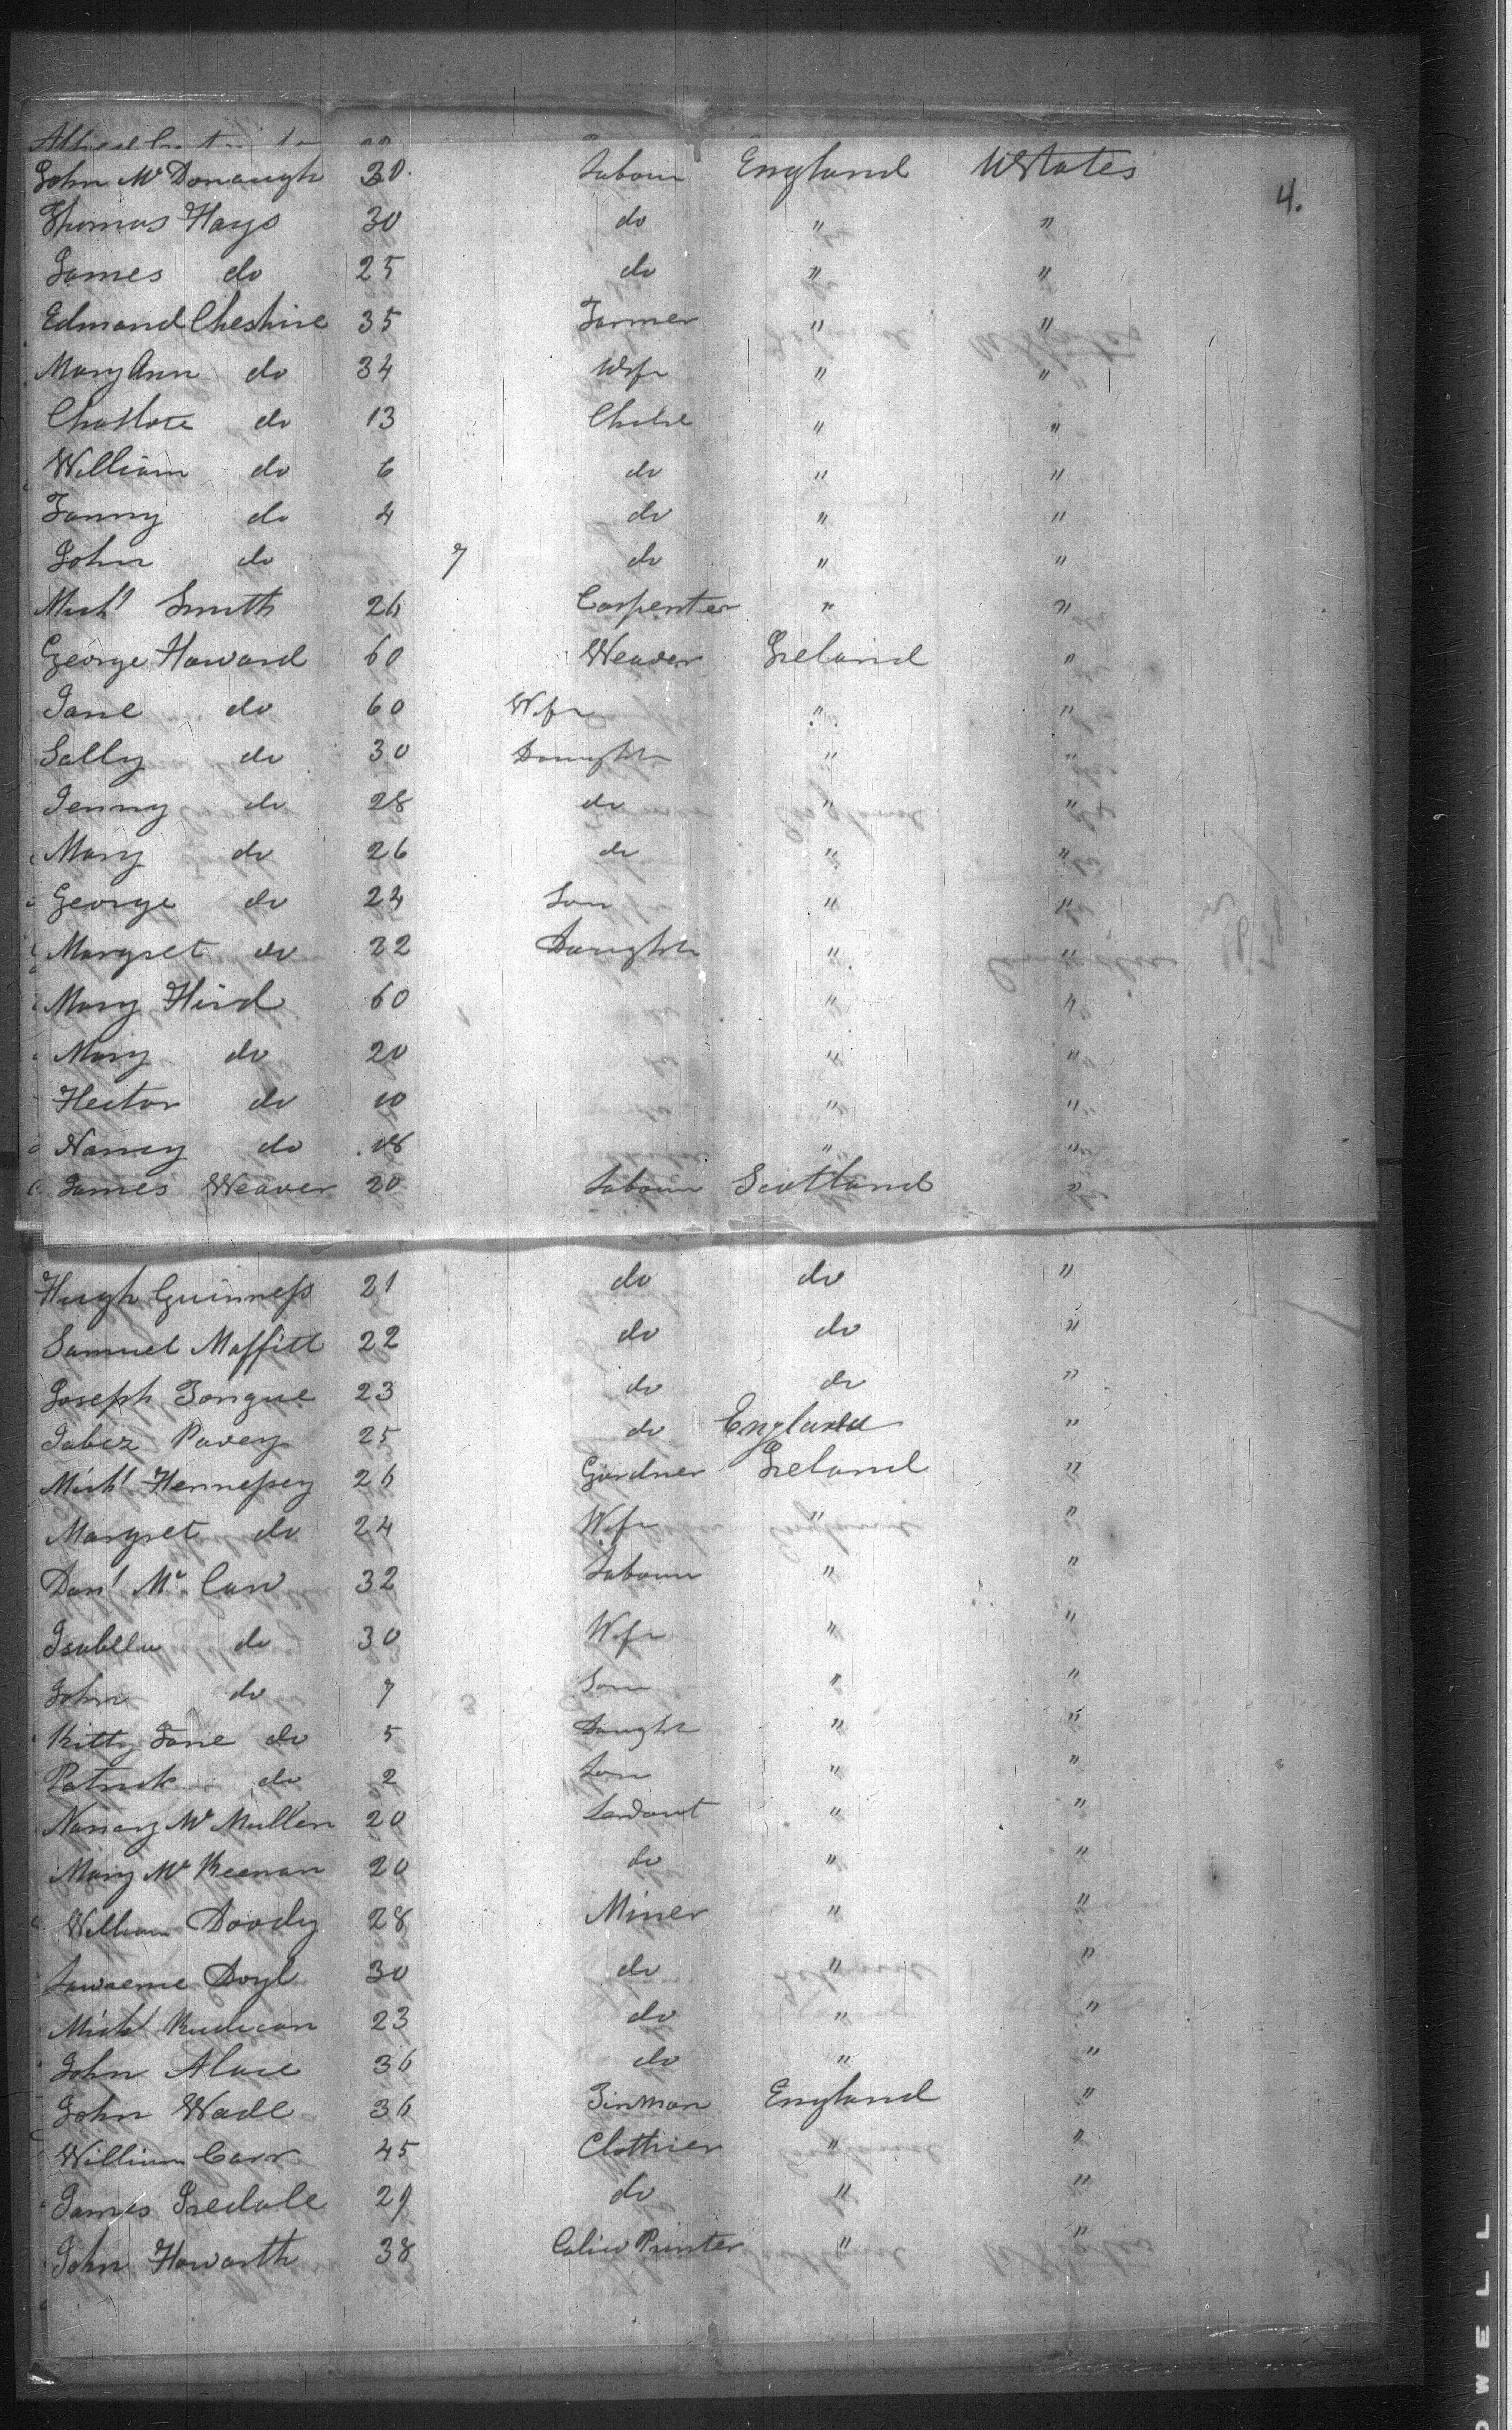 John McDonaugh 30 Labour England UStates
4.
Thomas Hays 30 do " "
James do 25 do " "
Edmond Cheshire 35 Farmer " "
Mary Ann do 34 Wife " "
Charlote do 13 Child " "
William do 6 do " "
Fanny do 4 do " "
John do 7 do " "
Mich1 Smith 26 Carpenter " "
George Howard 60 Weaver Ireland "
Jane do 60 Wife " "
Sally do 30 Daughtr " "
Jenny do 28 do " "
Mary do 26 do " "
George do 24 Son " "
Margret do 22 Daughtr " "
Mary Hird 60 " "
Mary do 20 " "
Hector do 10 " "
Nancy do 18 " "
James Weaver 20 Labour Scotland "
Hugh Guinness 21 do do "
Samuel Maffitt 22 do do "
Joseph Tongue 23 do do "
Jabez Pavey 25 do England "
Michl Hennessey 26 Gardner Ireland "
Margret do 24 Wife " "
Danl Mc Caw 32 Labour " "
Isabella do 30 Wife " "
John do 7 Son " "
Kitty Jane do 5 Daughtr " "
Patrick do 2 Son " "
Nancy Mc Mullen 20 Servant " "
Mary Mc Keenan 20 do " "
William Doody 28 Miner " "
Lawrence Doyl 30 do " "
Michl Rudican 23 do " "
John 36 do " "
John Wade 36 Tinman England "
William Carr 45 Clothier " "
James Iredale 29 do " "
John Howarth 38 Calico Printer " "
WELL